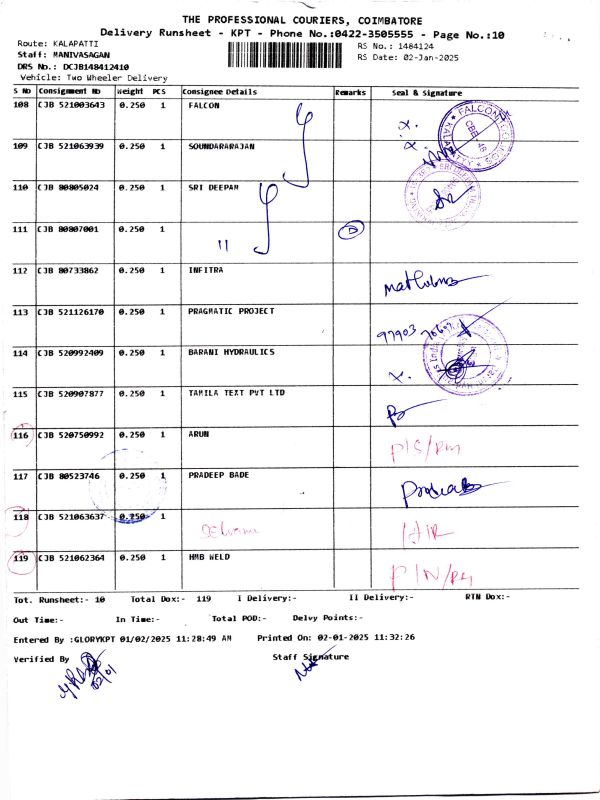 THE PROFESSIONAL COURIERS, COIMBATORE
Delivery Runsheet - KPT - Phone No.:0422-3505555 - Page No.:10
Route: KALAPATTI
RS No.: 1484124
Staff: MANIVASAGAN
RS Date: 02-Jan-2025
DRS No.: DCJB148412410
Vehicle: Two Wheeler Delivery
S No Consignment No Weight PCS Consignee Details Remarks Seal & Signature
108 CJB 521003643 0.250 1 FALCON
109 CJB 521063939 0.250 1 SOUNDARARAJAN
110 CJB 80805024 0.250 1 SRI DEEPAM
111 CJB 80807001 0.250 1 11 D
112 CJB 80733862 0.250 1 INFITRA
113 CJB 521126170 0.250 1 PRAGMATIC PROJECT
97903
114 CJB 520992409 0.250 1 BARANI HYDRAULICS
115 CJB 520907877 0.250 1 TAMILA TEXT PVT LTD
116 CJB 520750992 0.250 1 ARUN
117 CJB 80523746 0.250 1 PRADEEP BADE
118 CJB 521063637 0.250 1
119 CJB 521062364 0.250 1 HMB WELD
Tot. Runsheet:- 10 Total Dox:- 119 I Delivery:- II Delivery:- RTN Dox:-
Out Time:- In Time:- Total POD:- Delvy Points:-
Entered By :GLORYKPT 01/02/2025 11:28:49 AM Printed On: 02-01-2025 11:32:26
Verified By Staff Signature
02/01